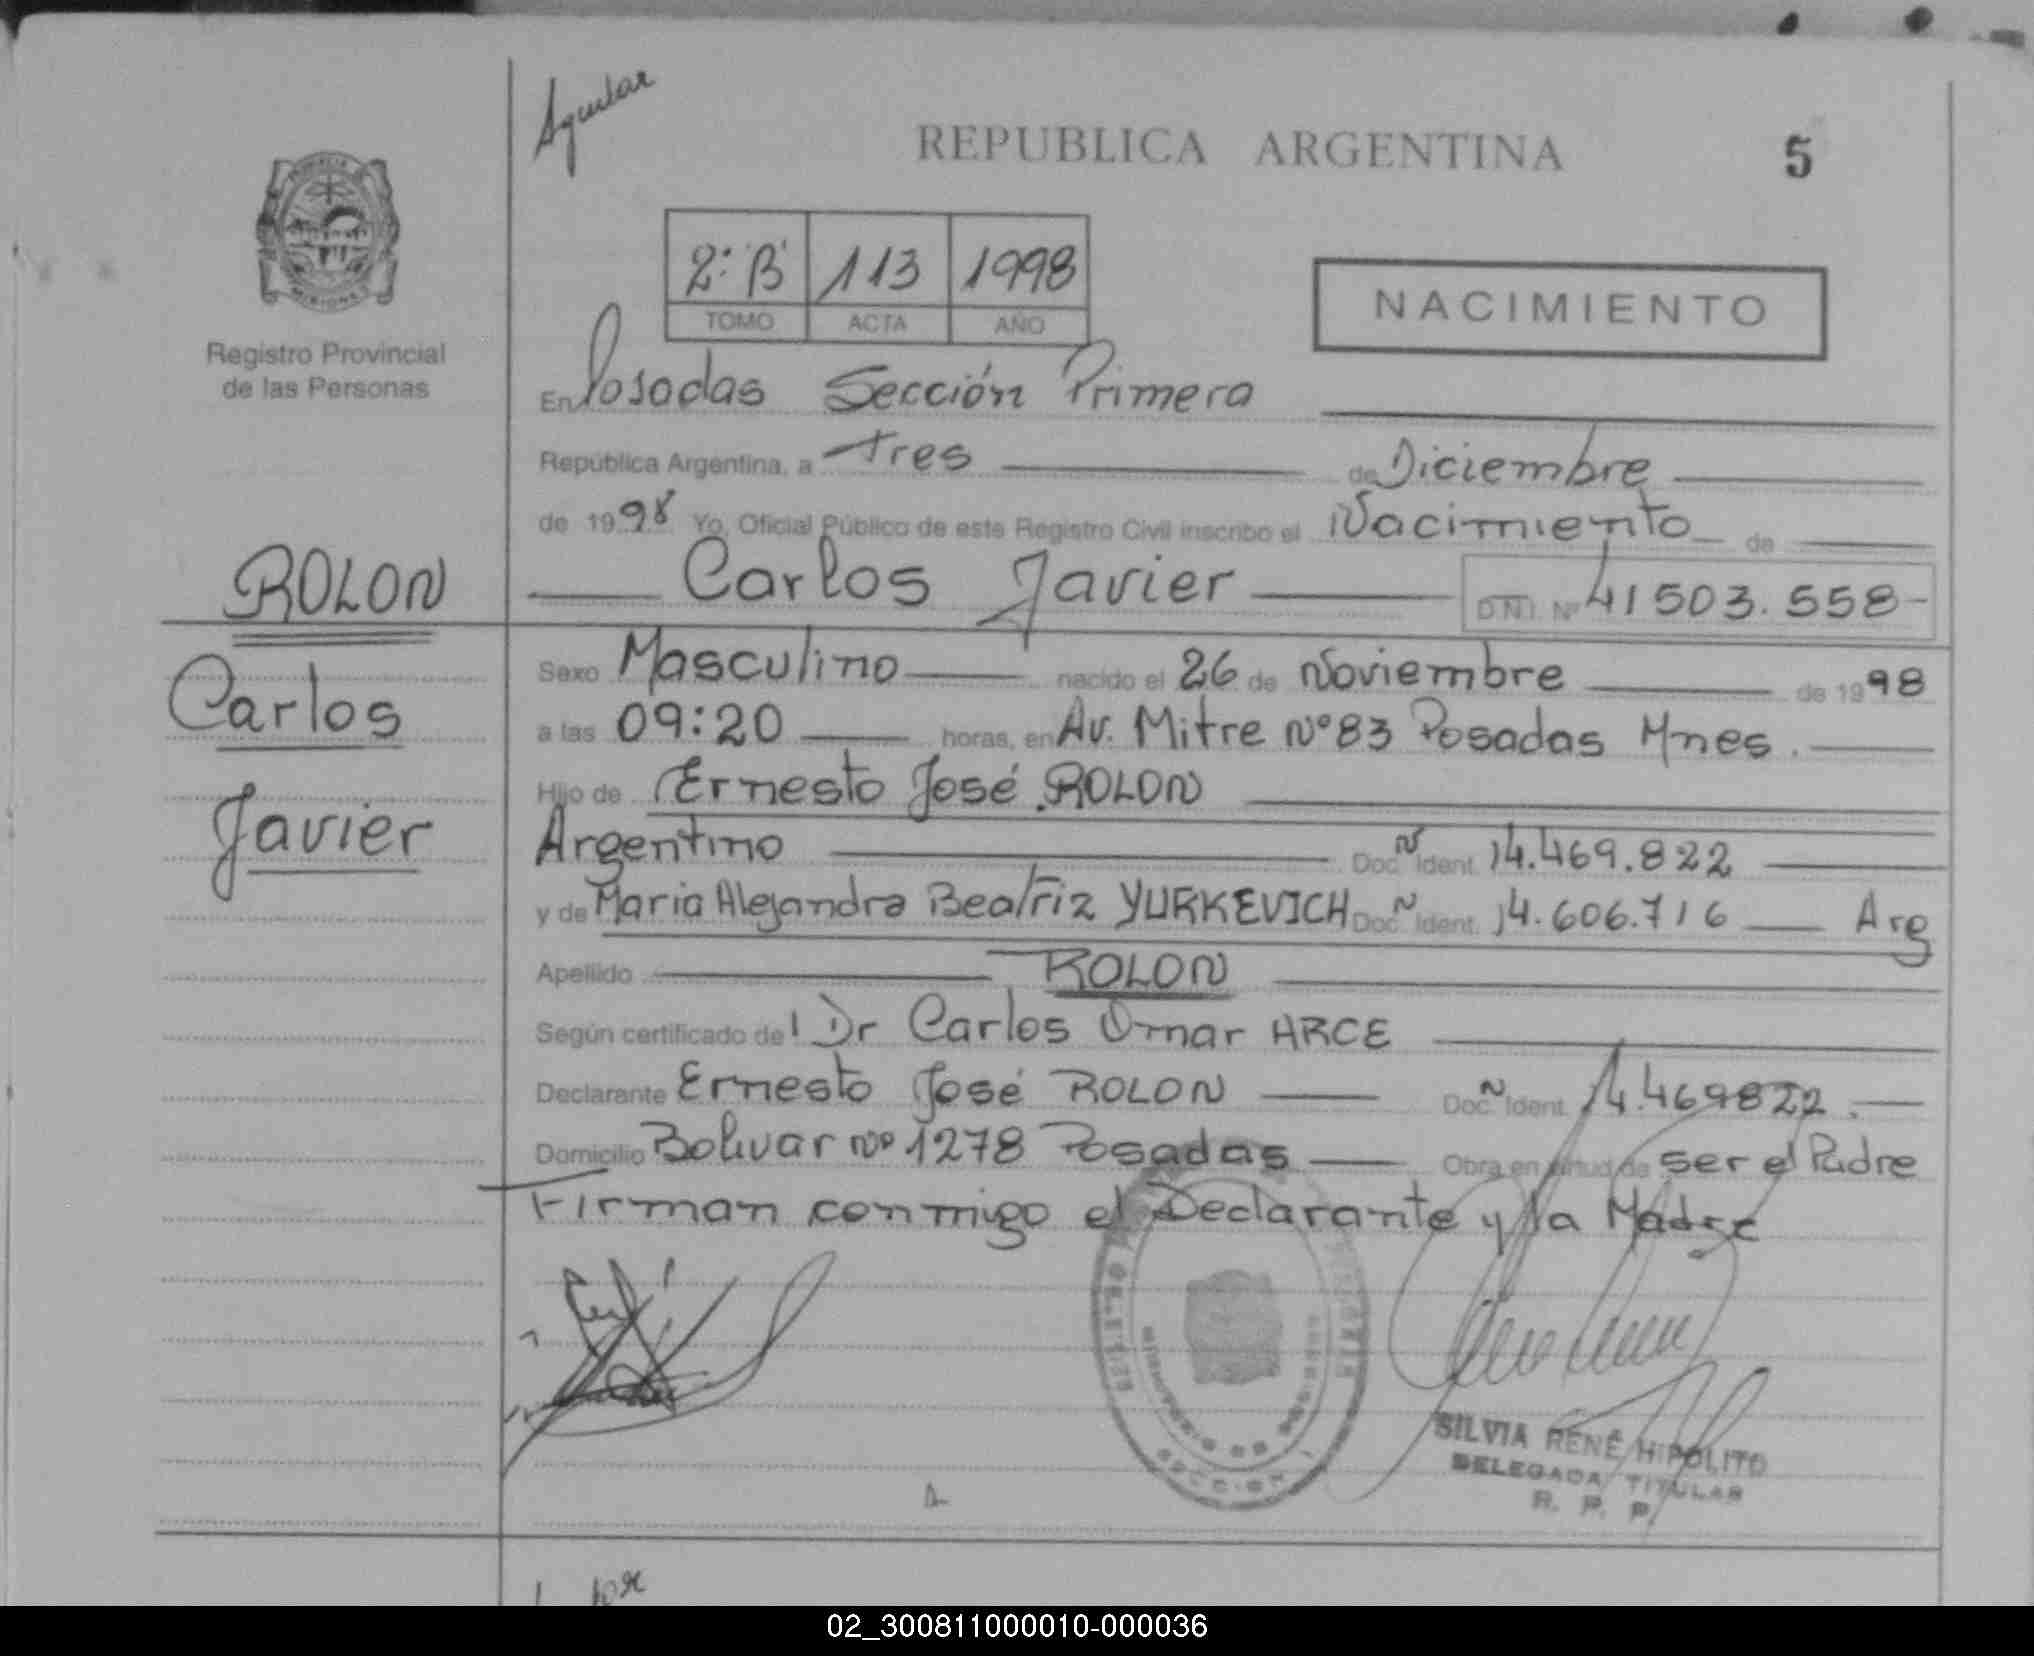 Aguilar
REPUBLICA ARGENTINA 5
2º B 113 1998
TOMO ACTA AÑO
NACIMIENTO
Registro Provincial
de las Personas
En Posadas Sección Primera
República Argentina, a tres de Diciembre
de 1998 Yo, Oficial Público de este Registro Civil inscribo el Nacimiento de
Carlos Javier D.N.I. Nº 41503.558-
ROLON
Carlos
Javier
Sexo Masculino nacido el 26 de Noviembre de 1998
a las 09:20 horas, en Av. Mitre Nº 83 Posadas Mnes.
Hijo de Ernesto José ROLON
Argentino Doc. Ident. 14.469.822
y de Maria Alejandra Beatriz YURKEVICH Doc. Ident. 14.606.716 Arg
Apellido ROLON
Según certificado del Dr Carlos Omar ARCE
Declarante Ernesto José ROLON Doc. Ident. 14.469822.
Domicilio Bolivar Nº 1278 Posadas Obra en virtud de ser el Padre
Firman conmigo el Declarante y la Madre
SECCION 1
SILVIA RENÉ HIPOLITO
DELEGADA TITULAR
R. P. P.
02_300811000010-000036